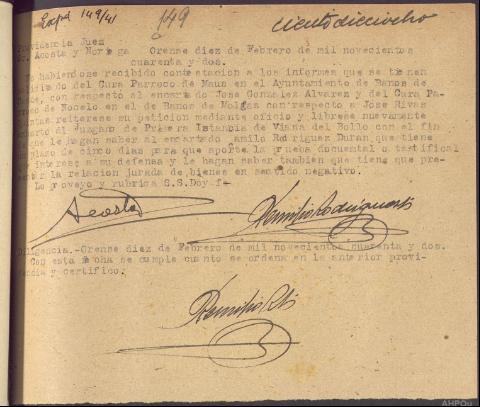 Expd 149/41
149
ciento dieciocho
Providencia Juez
Sr. Acosta y Noriega Orense diez de Febrero de mil novecientos
cuarenta y dos.
habiendose recibido contestacion a los informes que se tienen
del Cura Parroco de Maus en el Ayuntamiento de Banos de
con respecto al encartado Jose Gonzalez Alvarez y del Cura Pa-
de Nocelo en el de Banos de Molgas con respecto a Jose Rivas
reiterese su peticion mediante oficio y librese nuevamente
al Juzgado de Primera Istancia de Viana del Bollo con el fin
que le hagan saber al encartado Camilo Rodriguez Duran que tiene
plazo de cinco dias para que aporte la prueba documental o testifical
interese a su defensa y le hagan saber tambien que tiene que pre-
la relacion jurada de bienes en sentido negativo.
Lo proveyo y rubrica S.S. Doy fe
Acosta
Diligencia.-Orense diez de Febrero de mil novecientos cuarenta y dos.
Con esta fecha se cumple cuanto se ordena en la anterior provi-
dencia y certifico.
AHPOu